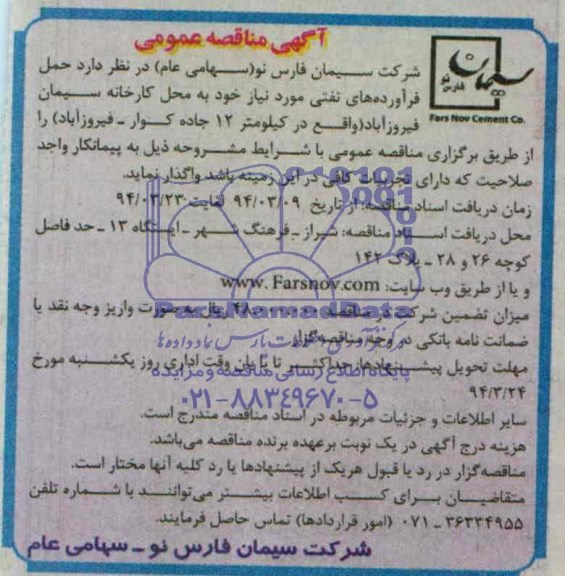 آگهی مناقصه عمومی
سیمان
فارس نو
Fars Nov Cement Co.
شرکت سیمان فارس نو(سهامی عام) در نظر دارد حمل
فرآورده‌های نفتی مورد نیاز خود به محل کارخانه سیمان
فیروزآباد(واقع در کیلومتر ۱۲ جاده کوار ـ فیروزآباد) را
از طریق برگزاری مناقصه عمومی با شرایط مشروحه ذیل به پیمانکار واجد
صلاحیت که دارای تجربیات کافی در این زمینه باشد واگذار نماید.
زمان دریافت اسناد مناقصه: از تاریخ ۹۴/۰۳/۰۹ لغایت ۹۴/۰۳/۲۳
محل دریافت اسناد مناقصه: شیراز ـ فرهنگ شهر ـ ایستگاه ۱۳ ـ حد فاصل
کوچه ۲۶ و ۲۸ ـ پلاک ۱۴۲
و یا از طریق وب سایت: www.Farsnov.com
ParsNamadData
میزان تضمین شرکت در مناقصه ریال به صورت واریز وجه نقد یا
ضمانت نامه بانکی در وجه مناقصه‌گزار
مهلت تحویل پیشنهادها: حداکثر تا پایان وقت اداری روز یکشنبه مورخ
پایگاه اطلاع رسانی مناقصه و مزایده
۹۴/۳/۲۴
۰۲۱-۸۸۳۴۹۶۷۰-۵
سایر اطلاعات و جزئیات مربوطه در اسناد مناقصه مندرج است.
هزینه درج آگهی در یک نوبت برعهده برنده مناقصه می‌باشد.
مناقصه‌گزار در رد یا قبول هریک از پیشنهادها یا رد کلیه آنها مختار است.
متقاضیان برای کسب اطلاعات بیشتر می‌توانند با شماره تلفن
۳۶۲۳۴۹۵۵ ـ ۰۷۱ (امور قراردادها) تماس حاصل فرمایند.
شرکت سیمان فارس نو ـ سهامی عام